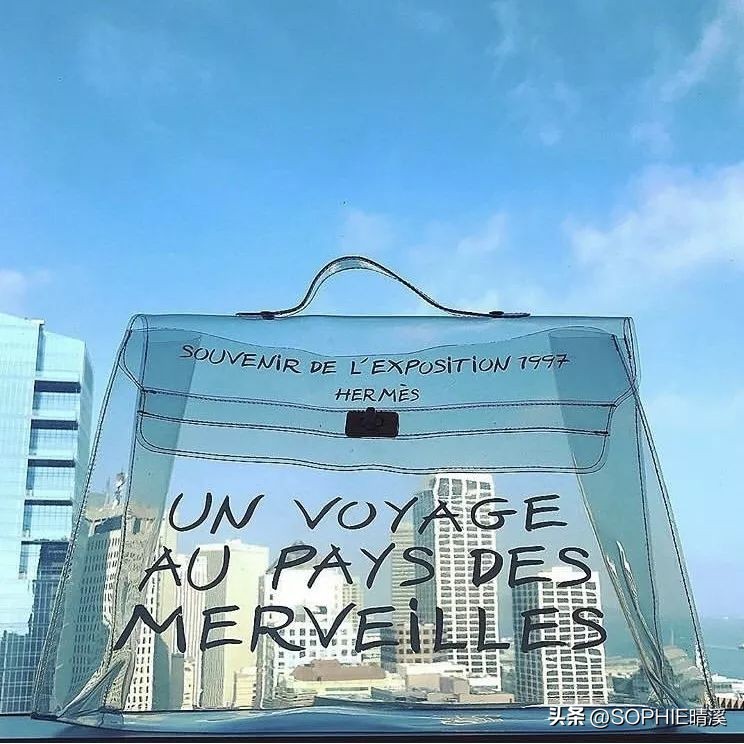 SOUVENIR DE L'EXPOSITION 1997
HERMÈS
UN VOYAGE
AU PAYS DES
MERVEILLES
头条 @SOPHIE晴溪